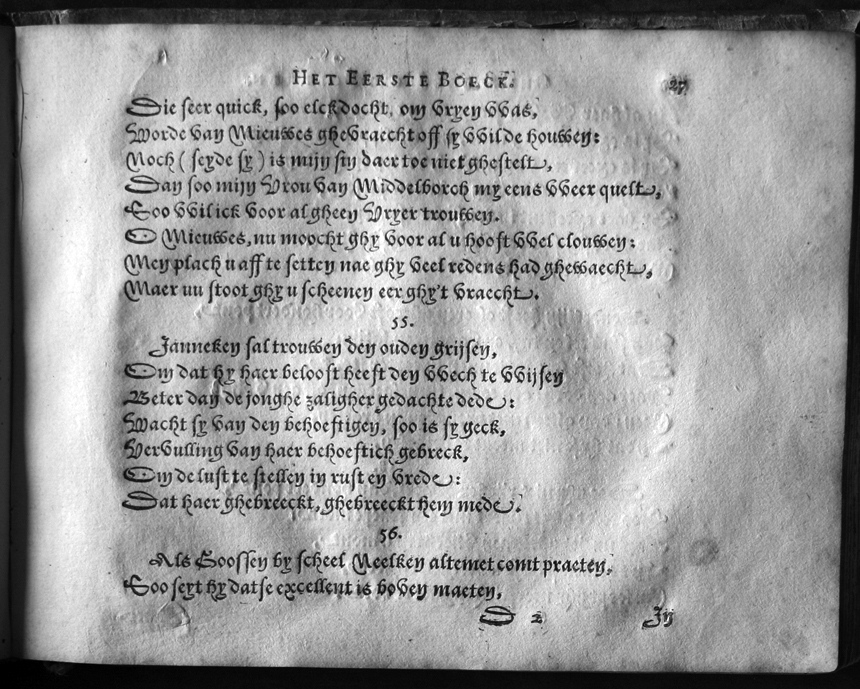 HET EERSTE BOECK. 27
Die seer quick, soo elck docht, om vryen vvas,
Worde van Mieuwes ghevraecht off sy vvilde houwen:
Noch ( seyde sy ) is mijn sin daer toe niet ghestelt,
Dan soo mijn Vrou van Middelborch my eens vveer quelt,
Soo vvil ick voor al gheen Vryer trouwen.
O Mieuwes, nu moocht ghy voor al u hooft vvel clouwen:
Men plach u aff te setten nae ghy veel redens had ghewaecht,
Maer nu stoot ghy u scheenen eer ghy't vraecht.
55.
Janneken sal trouwen den ouden grijsen,
Om dat hy haer belooft heeft den vvech te vvijsen
Beter dan de jonghe zaligher gedachte dede:
Wacht sy van den behoeftigen, soo is sy geck,
Vervulling van haer behoeftich gebreck,
Om de lust te stellen in rust en vrede:
Dat haer ghebreeckt, ghebreeckt hem mede.
56.
Als Goossen by scheel Neelken altemet comt praeten,
Soo seyt hy datse excellent is boven maeten,
D 2 In